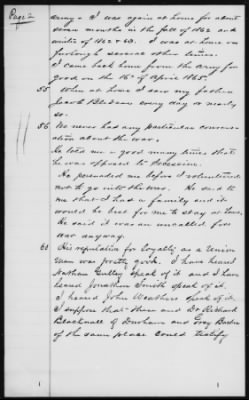 Page 2
army - I was again at home for about
seven months in the fall of 1862 and
winter of 1862 & 63. I was at home on
furlough several other times.
I came back home from the army for
good on the 16th of April 1865.
55 When at home I saw my father
Jacob Bledsoe every day or nearly
so.
56 We never had any particular conversa-
tion about the war.
He told me a good many times that
he was opposed to secession.
He persuaded me before I volunteered
not to go into the war. He said to
me that I had a family and it
would be best for me to stay at home.
He said it was an uncalled for
war anyway.
60 His reputation for loyalty as a Union
man was pretty good. I have heard
Nathan Gulley speak of it and I have
heard Jonathan Smith speak of it.
I heard John Weathers speak of it.
I suppose that these and Dr Richard
Blacknall of Durham and Grey Barbee
of the same place could testify